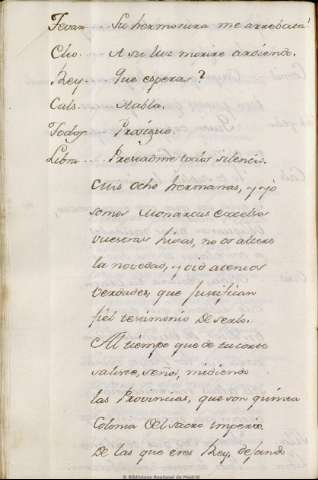 Fevan... Su hermosura me arrebata!
Clio... A su luz moriré ardiendo.
Rey... Que esperas?
Cals... Habla.
Todos... Prosigue.
Libia... Prestadme todos silencio.
Mis ocho hermanas, y yo
somos Monarcas excelso
vuestras hijas, no os altere
la novedad, y oid atentos
verdades, que justifican
fiel testimonio
Al tiempo que de tu corte
saliste, señor, midiendo
las Provincias, que son quinta
Colonia del sacro imperio
de las que eres Rey, dejando
© Biblioteca Nacional de Madrid